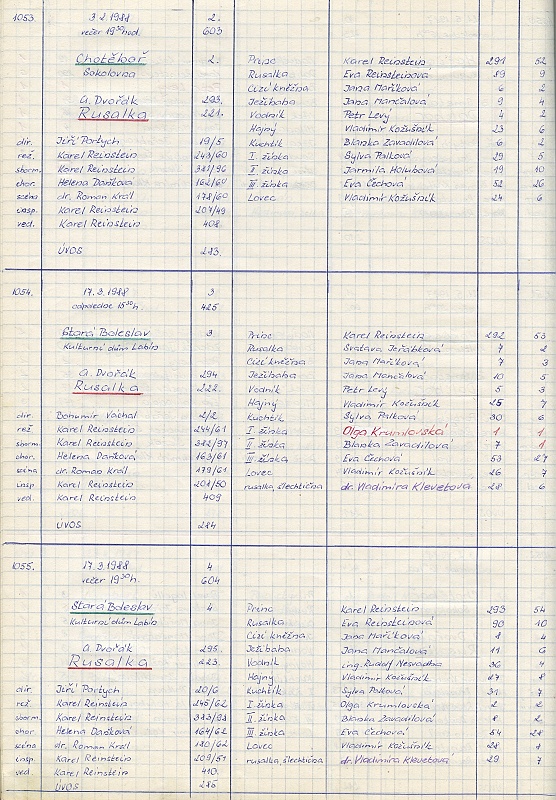 1053. 3.2.1988 2.
večer 19³⁰ hod. 603
Chotěboř 2. Princ Karel Reinstein 291 52
Sokolovna Rusalka Eva Reinsteinová 89 9
Cizí kněžna Jana Maříková 6 2
A. Dvořák 293. Ježibaba Jana Mančalová 9 4
Rusalka 221. Vodník Petr Levý 4 2
Hajný Vladimír Kožušník 23 6
dir. Jiří Portych 19/5 Kuchtík Blanka Zavadilová 6 2
rež. Karel Reinstein 243/60 I. žínka Sylva Palková 29 5
sborm. Karel Reinstein 381/96 II. žínka Jarmila Holubová 19 10
chor. Helena Daňková 162/60 III. žínka Eva Čechová 52 26
scéna dr. Roman Král 178/60 Lovec Vladimír Kožušník 24 6
insp. Karel Reinstein 207/49
ved. Karel Reinstein 408
ÚVOS 283.
1054. 17.3.1988 3
odpoledne 15³⁰ h. 425
Stará Boleslav 3 Princ Karel Reinstein 292 53
Kulturní dům Labín Rusalka Svatava Jeřábková 7 2
Cizí kněžna Jana Maříková 7 3
A. Dvořák 294 Ježibaba Jana Mančalová 10 5
Rusalka 222. Vodník Petr Levý 5 3
Hajný Vladimír Kožušník 25 7
dir. Bohumír Váchal 2/2 Kuchtík Sylva Palková 30 6
rež Karel Reinstein 244/61 I. žínka Olga Krumlovská 1 1
sborm. Karel Reinstein 382/97 II. žínka Blanka Zavadilová 7 1
chor. Helena Daňková 163/61 III. žínka Eva Čechová 53 27
scéna dr. Roman Král 179/61 Lovec Vladimír Kožušník 26 7
insp Karel Reinstein 208/50 rusalka, šlechtična dr. Vladimíra Klevetová 28 6
ved. Karel Reinstein 409
ÚVOS 284
1055. 17.3.1988 4
večer 19³⁰ h. 604
Stará Boleslav 4 Princ Karel Reinstein 293 54
Kulturní dům Labín Rusalka Eva Reinsteinová 90 10
Cizí kněžna Jana Maříková 8 4
A. Dvořák 295. Ježibaba Jana Mančalová 11 6
Rusalka 223. Vodník ing. Rudolf Nesvadba 36 4
Hajný Vladimír Kožušník 27 8
dir. Jiří Portych 20/6 Kuchtík Sylva Palková 31 7
rež. Karel Reinstein 245/62 I žínka Olga Krumlovská 2 2
sborm. Karel Reinstein 383/98 II. žínka Blanka Zavadilová 8 2
chor. Helena Daňková 164/62 III. žínka Eva Čechová 54 28
scéna dr. Roman Král 180/62 Lovec Vladimír Kožušník 28 8
insp. Karel Reinstein 209/51 rusalka, šlechtična dr. Vladimíra Klevetová 29 7
ved. Karel Reinstein 410.
ÚVOS 285